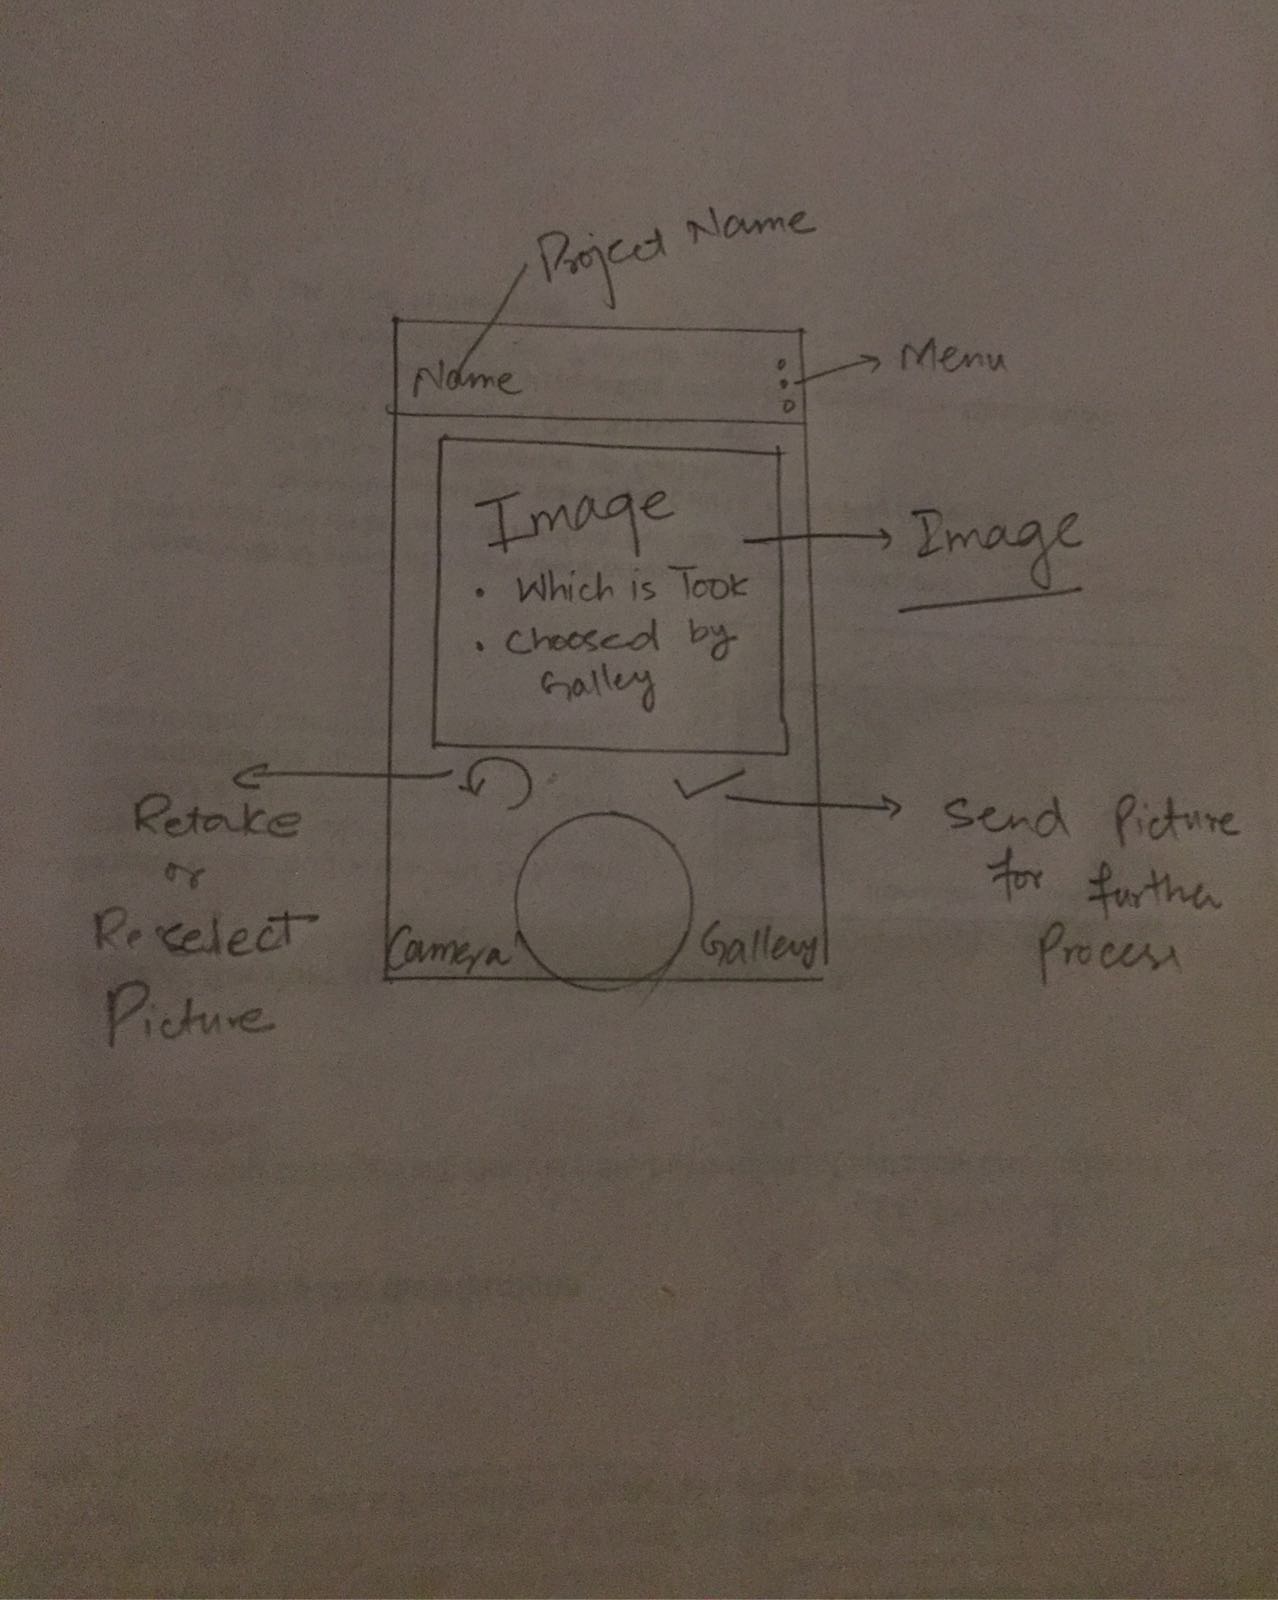 Project Name
Name
Menu
Image
Which is Took
Choosed by
Galley
Image
Retake
or
Reselect
Picture
Send Picture
for further
Process
Camera
Gallery